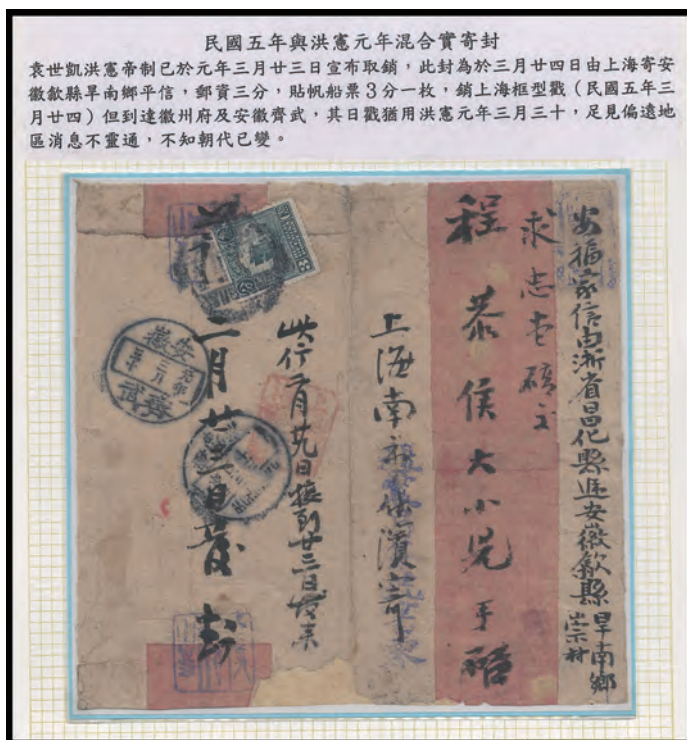 民國五年與洪憲元年混合實寄封
袁世凱洪憲帝制已於元年三月廿三日宣布取銷，此封為於三月廿四日由上海寄安
徽歙縣旱南鄉平信，郵資三分，貼帆船票3分一枚，銷上海框型戳（民國五年三
月廿四）但到達徽州府及安徽齊武，其日戳猶用洪憲元年三月三十，足見偏遠地
區消息不靈通，不知朝代已變。
安福家信由浙省昌化縣進安徽歙縣旱南鄉
崇村
求志堂
程恭侯大小兄手啟
上海南
寄
此行二月廿九日接到廿三日發來
二月廿三日發封
安徽
元年
三月
三十
齊武
3